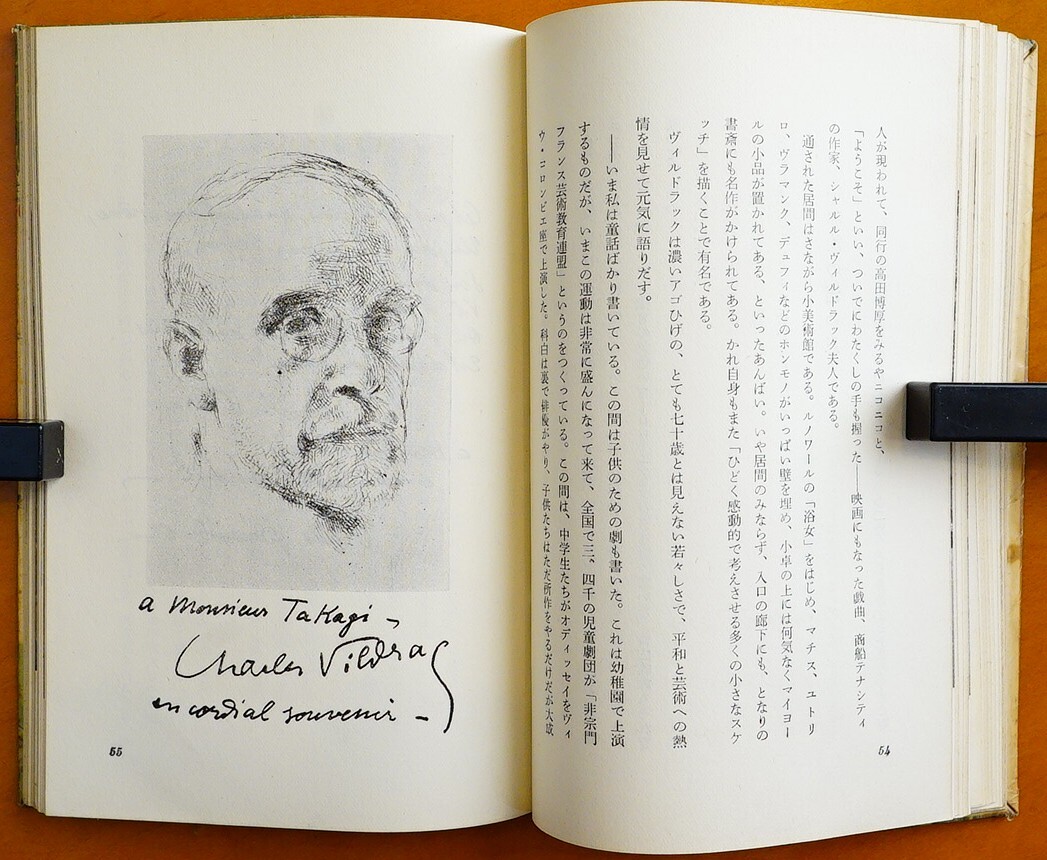 人が現われて、同行の高田博厚をみるやニコニコと、
「ようこそ」といい、ついでにわたくしの手も握った——映画にもなった戯曲、商船テナシティ
の作家、シャルル・ヴィルドラック夫人である。
通された居間はさながら小美術館である。ルノワールの「浴女」をはじめ、マチス、ユトリ
ロ、ヴラマンク、デュフィなどのホンモノがいっぱい壁を埋め、小卓の上には何気なくマイヨー
ルの小品が置かれてある、といったあんばい。いや居間のみならず、入口の廊下にも、となりの
書斎にも名作がかけられてある。かれ自身もまた「ひどく感動的で考えさせる多くの小さなスケ
ッチ」を描くことで有名である。
ヴィルドラックは濃いアゴひげの、とても七十歳とは見えない若々しさで、平和と芸術への熱
情を見せて元気に語りだす。
——いま私は童話ばかり書いている。この間は子供のための劇も書いた。これは幼稚園で上演
するものだが、いまこの運動は非常に盛んになって来て、全国で三、四千の児童劇団が「非宗門
フランス芸術教育連盟」というのをつくっている。この間は、中学生たちがオディッセイをヴィ
ウ・コロンビエ座で上演した。科白は裏で俳優がやり、子供たちはただ所作をやるだけだが大成
54
a Monsieur Takagi -
Charles Vildrac
en cordial souvenir -
55